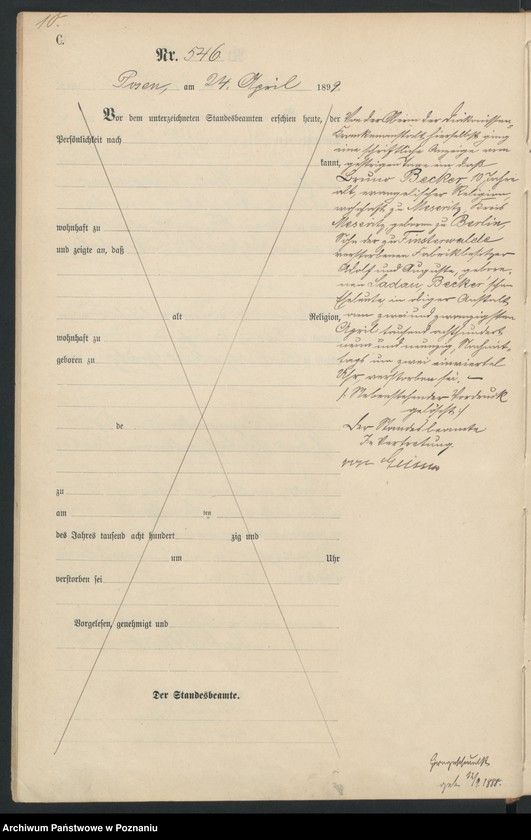 10.
C.
Nr. 546
Posen, am 24. April 1899.
Vor dem unterzeichneten Standesbeamten erschien heute, der
Persönlichkeit nach
kannt,
wohnhaft zu
und zeigte an, daß
alt Religion,
wohnhaft zu
geboren zu
de
zu
am ten
des Jahres tausend acht hundert zig und
um Uhr
verstorben sei
Vorgelesen, genehmigt und
Der Standesbeamte.
Von der Oberin der Diakonissen-
Krankenanstalt hierselbst ging
eine schriftliche Anzeige vom
gestrigen Tage ein, daß
Bruno Becker, 10 Jahre
alt, evangelischer Religion,
wohnhaft zu Meseritz, Kreis
Meseritz, geboren zu Berlin,
Sohn der zu Finsterwalde
verstorbenen Fabrikbesitzer
Adolf und Auguste, gebore-
nen Sadau, Becker'schen
Eheleute in obiger Anstalt,
am zwei und zwanzigsten
April tausend achthundert
neun und neunzig, Nachmit-
tags um zwei einviertel
Uhr, verstorben sei. —
/: Nebenstehender Vordruck
gelöscht :/
Der Standesbeamte
In Vertretung
von
geb. 12/9 1888.
Archiwum Państwowe w Poznaniu